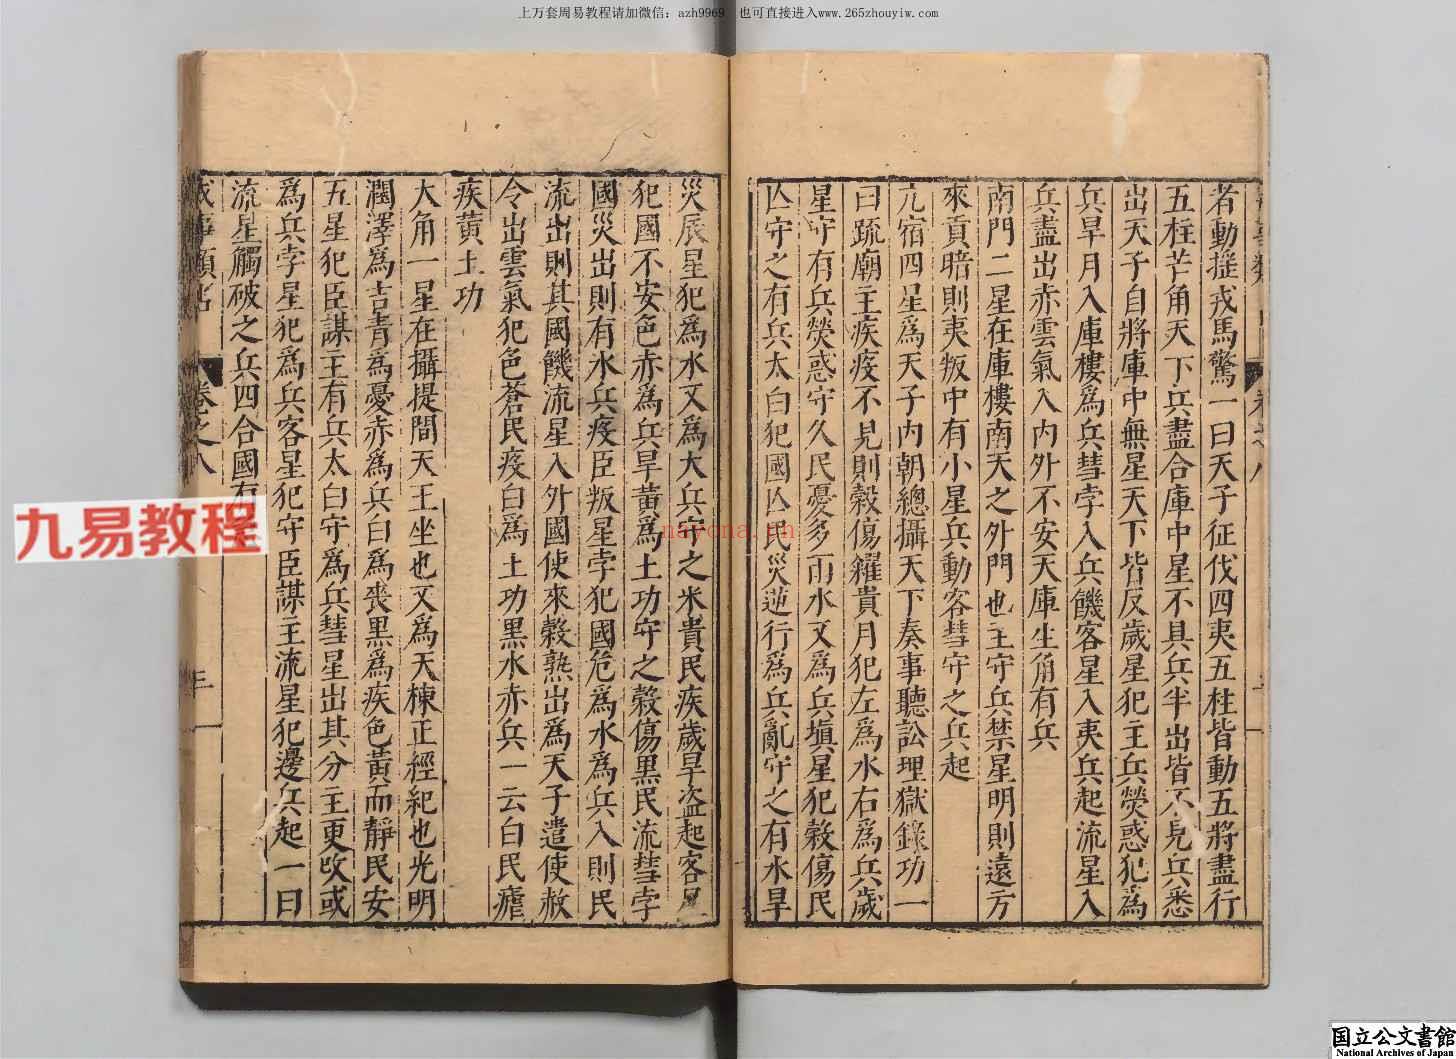 上万套周易教程请加微信：azh9969 也可直接进入www.265zhouyiw.com
者動摇戎馬驚一曰天子征伐四夷五柱皆動五將盡行
五柱芒角天下兵盡合庫中星不具兵半出皆不見兵悉
出天子自將庫中無星天下皆反歲星犯主兵熒惑犯爲
兵旱月入庫樓爲兵彗孛入兵饑客星入夷兵起流星入
兵盡出赤雲氣入内外不安天庫生角有兵
南門二星在庫樓南天之外門也主守兵禁星明則遠方
來貢暗則夷叛中有小星兵動客彗守之兵起
亢宿四星爲天子内朝總攝天下奏事聽訟理獄錄功一
曰疏廟主疾疫不見則穀傷糴貴月犯左爲水右爲兵歲
星守有兵熒惑守久民憂多雨水又爲兵填星犯穀傷民
亾守之有兵太白犯國亾民災逆行爲兵亂守之有水旱
卷之八
災辰星犯爲水又爲大兵守之米貴民疾歲旱盗起客星
犯國不安色赤爲兵旱黄爲土功守之穀傷黒民流彗孛
國災出則有水兵疫臣叛星孛犯國危爲水爲兵入則民
流出則其國饑流星入外國使來穀熟出爲天子遣使赦
令出雲氣犯色蒼民疫白爲土功黒水赤兵一云白民瘧
疾黄土功
大角一星在攝提間天王坐也又爲天棟正經紀也光明
潤澤爲吉青爲憂赤爲兵白爲喪黒爲疾色黄而靜民安
五星犯臣謀主有兵太白守爲兵彗星出其分主更改或
爲兵孛星犯爲兵客星犯守臣謀主流星犯邊兵起一曰
流星觸破之兵四合國有
卷之八
九易教程
nayona.cn
国立公文書館
National Archives of Japan